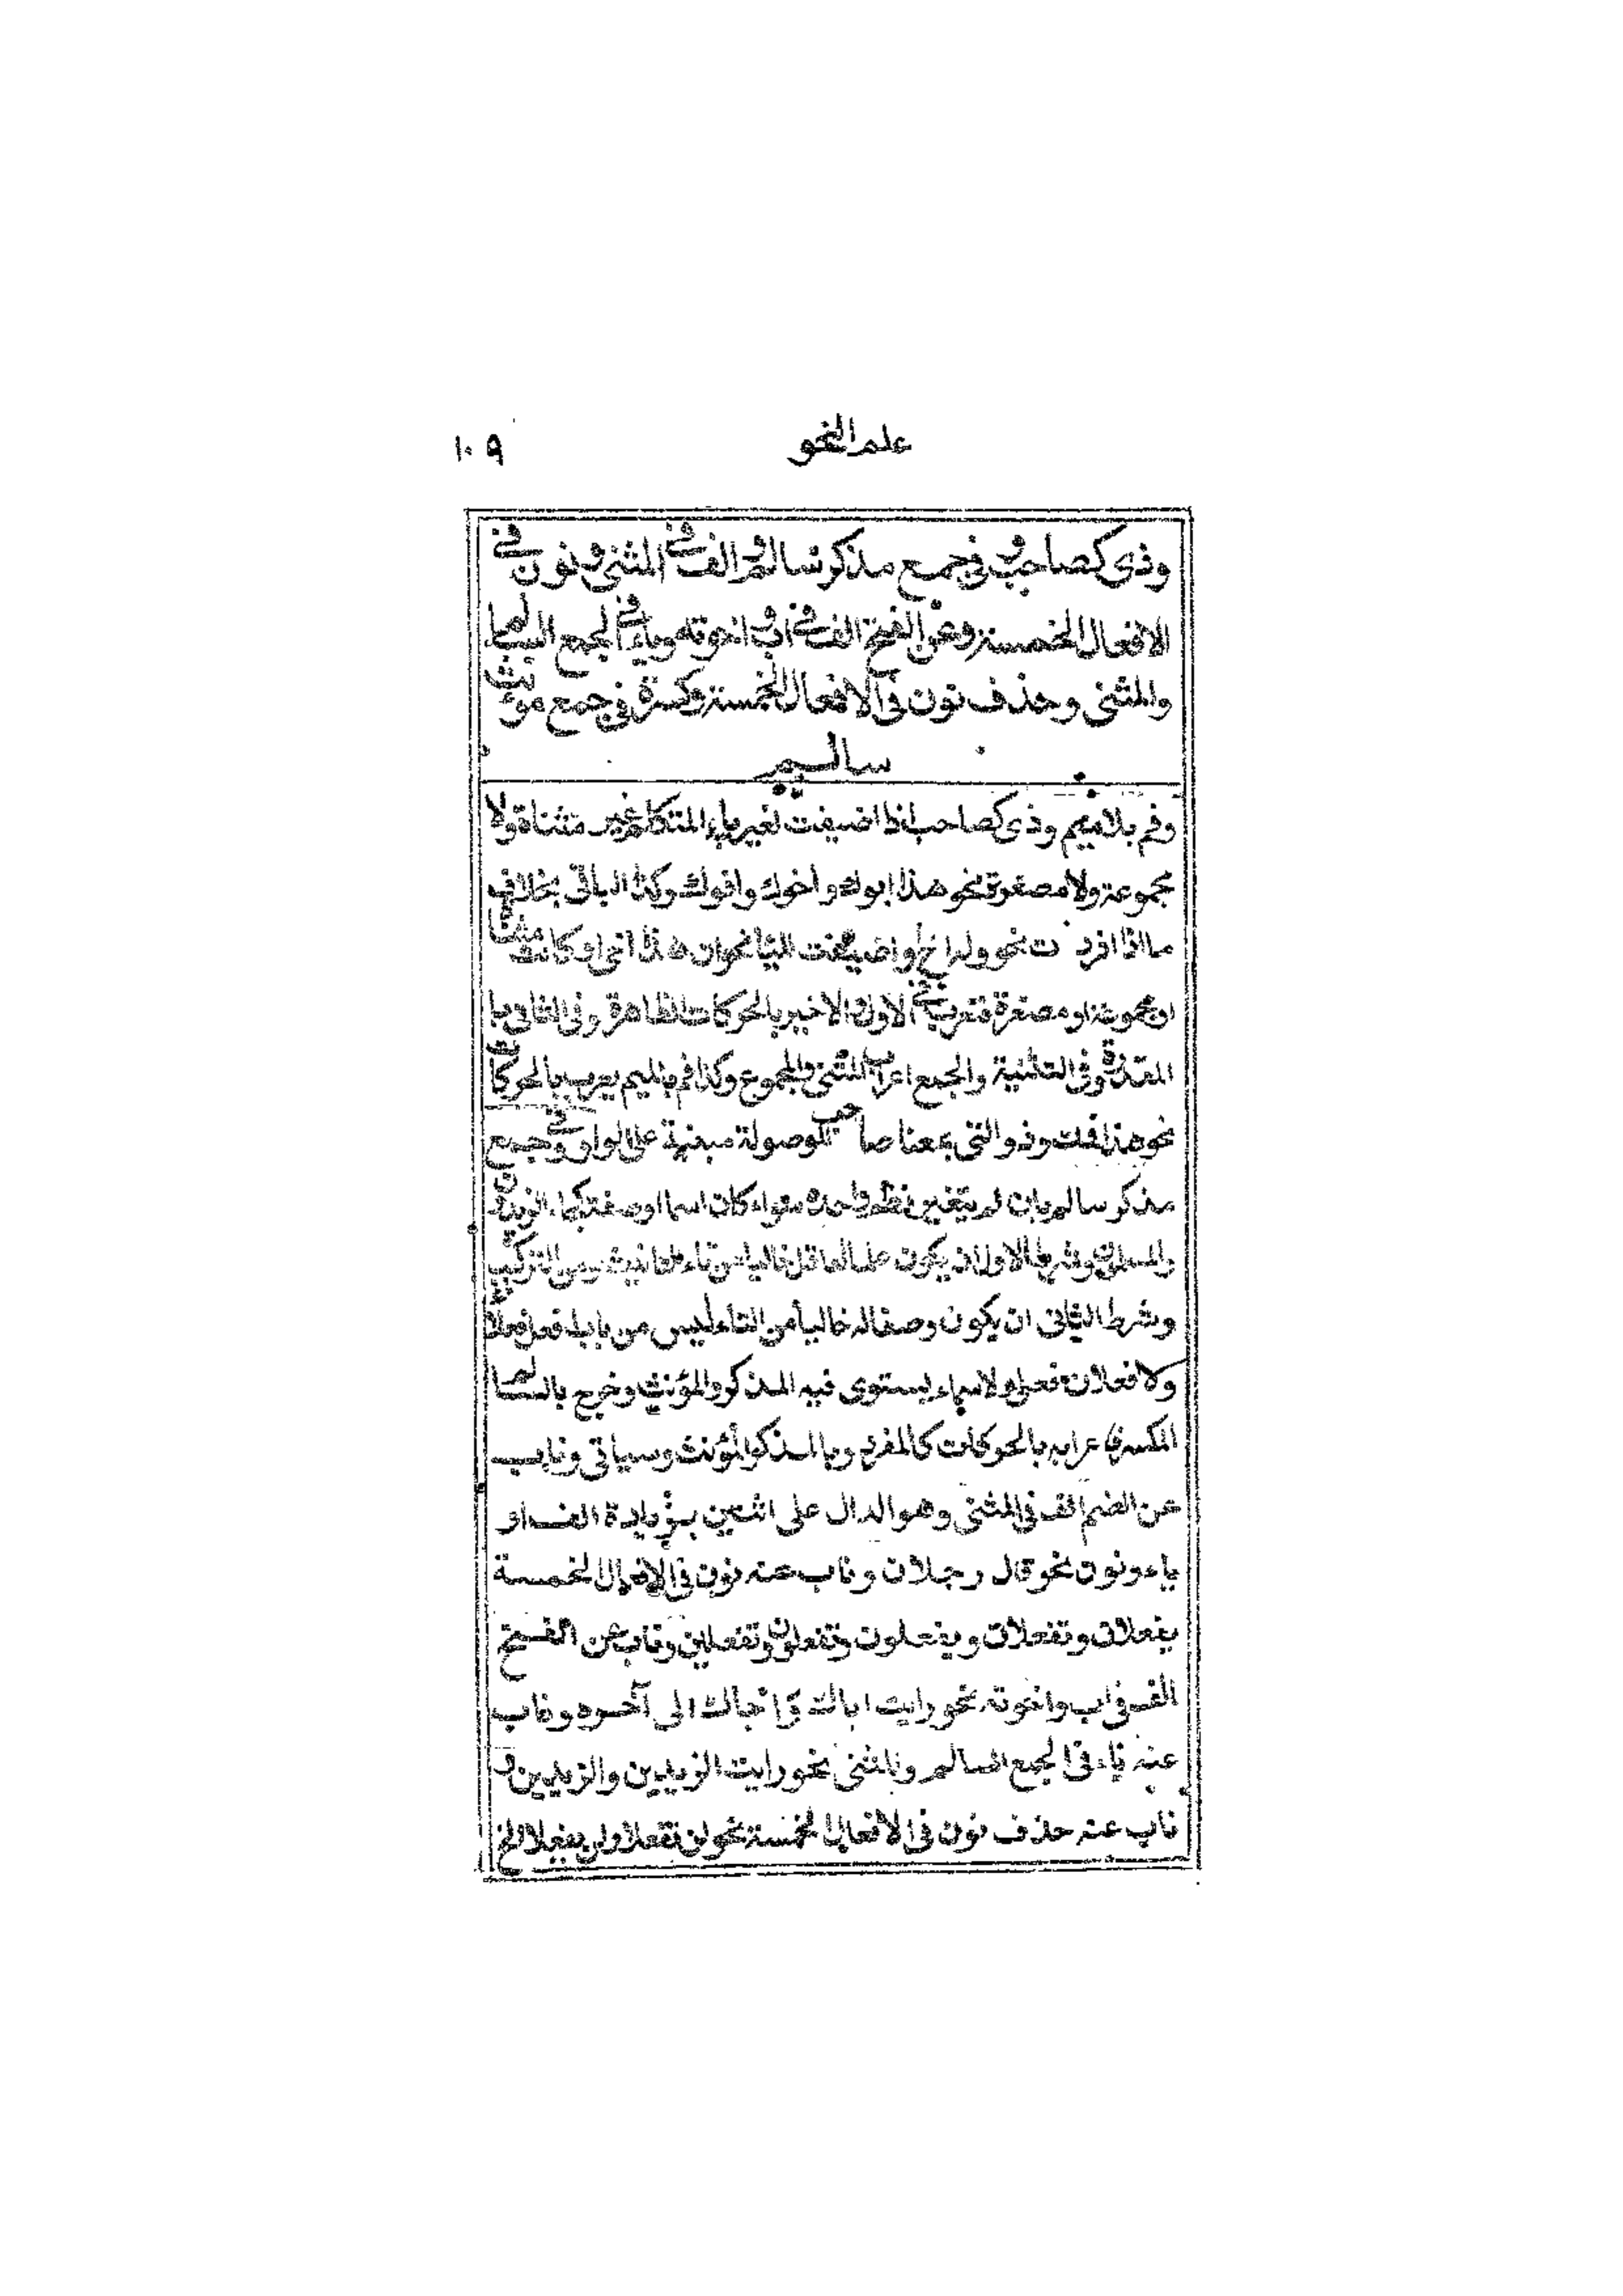 علم النحو
١٠٩
وذى كصاحب وفى جمع مذكر سالم والف فى المثنى ونون فى
الافعال الخمسة وعن الفتح الف فى اب واخوته وياء فى الجمع السالم
والمثنى وحذف نون فى الافعال الخمسة وكسرة فى جمع مؤنث
سالم
وفم بلا ميم وذى كصاحب اذا اضيفت لغير ياء المتكلم غير مثناة ولا
مجموعة ولا مصغرة نحو هذا ابوك واخوك وفوك وكذا الباقى بخلاف
ما اذا افردت نحو وله اخ او اضيفت الى الياء نحو ان هذا اخى او كانت مثناة
او مجموعة او مصغرة فتعرب فى الاول والاخير بالحركات الظاهرة وفى الثانى با
المقدرة وفى التثنية والجمع اعراب المثنى والمجموع وكذا فم بالميم يعرب بالحركات
نحو هذا فمك وذو التى بمعنا صاحب الموصولة مبنية على الواو وفى جمع
مذكر سالم بان لم يتغير نظم واحده سواء كان اسما او صفة كجاء الزيدون
والمسلمون وشرط الاول ان يكون علما لعاقل خاليا من تاء التانيث ومن التركيب
وشرط الثانى ان يكون وصفا له خاليا من التاء ليس من باب افعل فعلاء
ولا فعلان فعلى ولا مما يستوى فيه المذكر والمؤنث وخرج بالسالم
المكسر فاعرابه بالحركات كالمفرد وبالمذكر المؤنث وسياتى وناب
عن الضم الف فى المثنى وهو الدال على اثنين بزيادة الف او
ياء ونون نحو قال رجلان وناب عنه نون فى الافعال الخمسة
يفعلان وتفعلان ويفعلون وتفعلون وتفعلين وناب عن الفتح
الف فى اب واخوته نحو رايت اباك واخاك الى آخره وناب
عنه ياء فى الجمع السالم والمثنى نحو رايت الزيدين والزيدين و
ناب عنه حذف نون فى الافعال الخمسة نحو لن تفعلا ولن يفعلا الخ